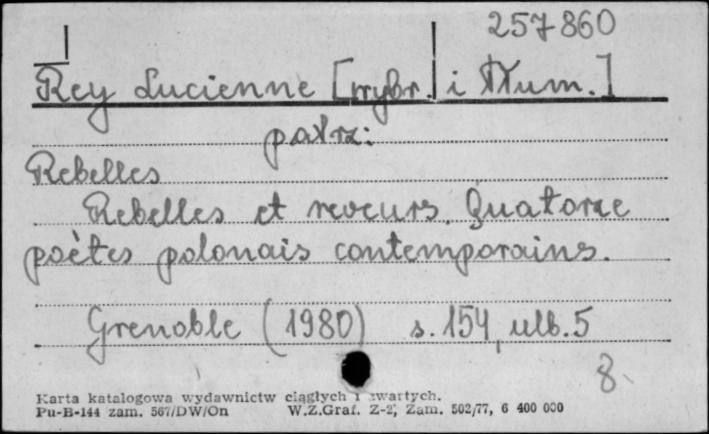 257860
Rey Lucienne [wybr. i tłum.]
patrz:
Rebelles
Rebelles et reveurs. Quatorze
poètes polonais contemporains.
Grenoble (1980) s. 154, ulb. 5
8.
Karta katalogowa wydawnictw ciągłych i zwartych.
Pu-B-144 zam. 567/DW/On W.Z.Graf. Z-2, Zam. 502/77, 6 400 000